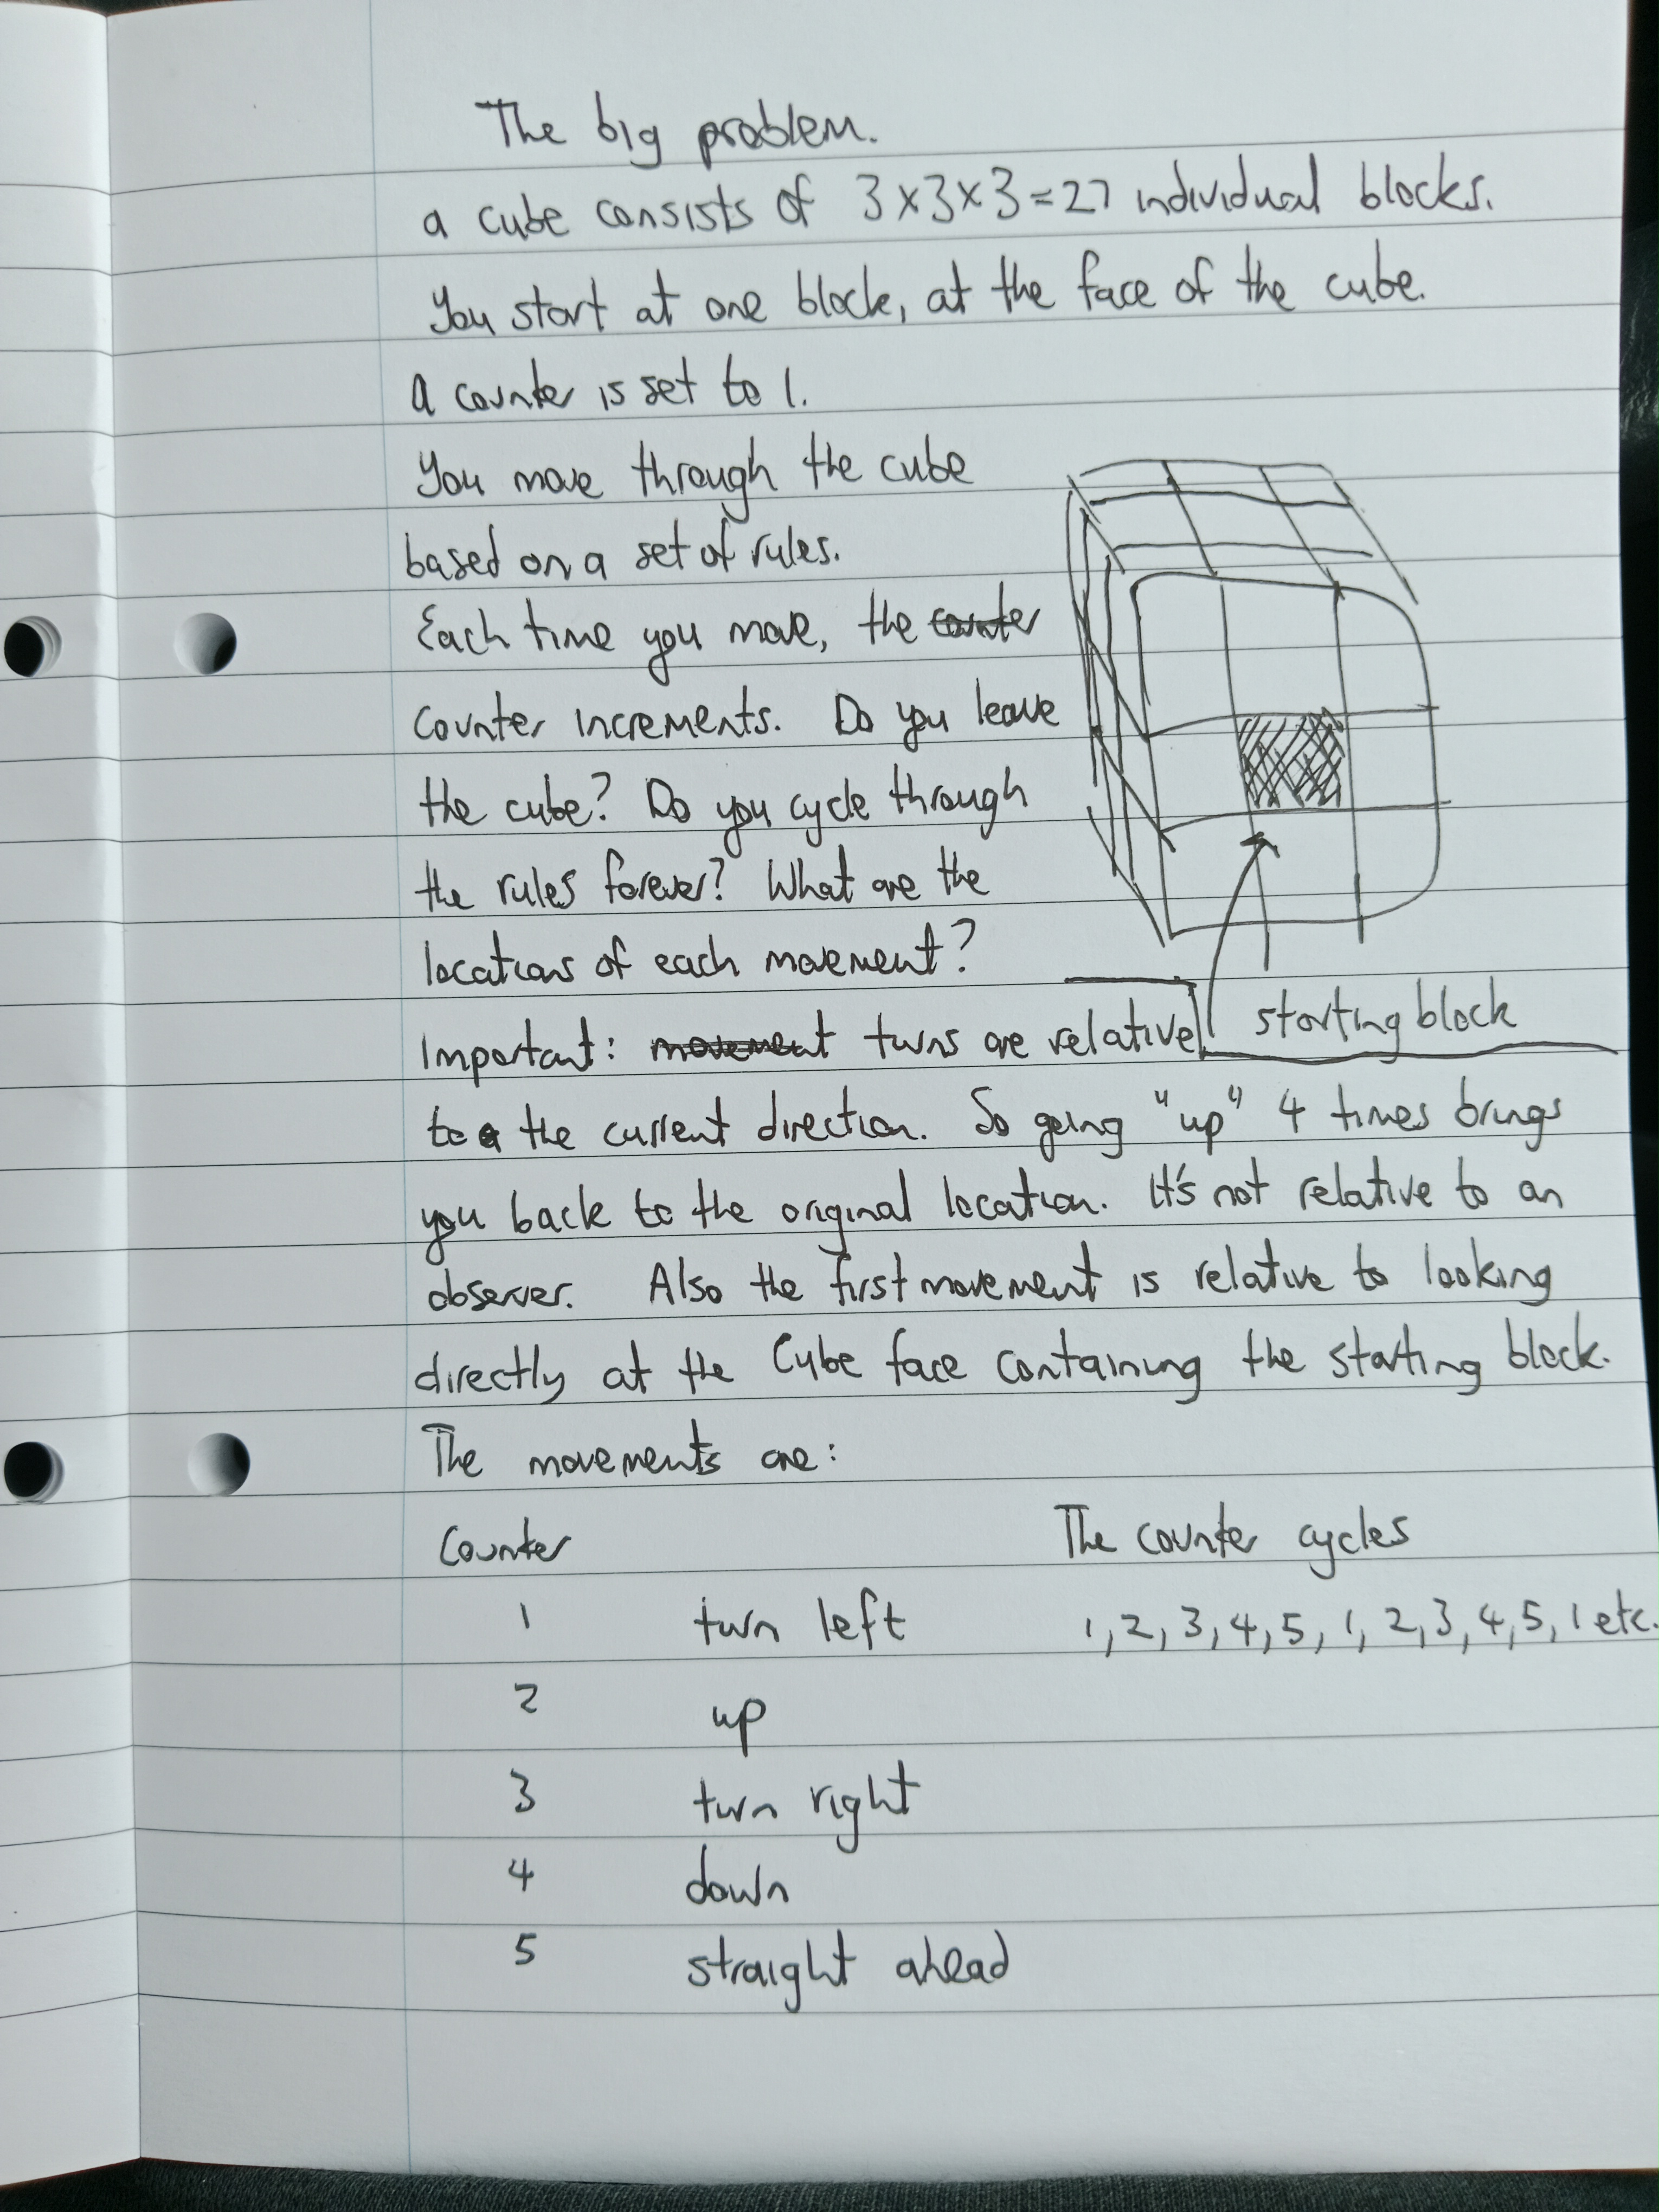 The big problem.
a cube consists of 3×3×3=27 individual blocks.
You start at one block, at the face of the cube.
A counter is set to 1.
You move through the cube
based on a set of rules.
Each time you move, the counter
counter increments. Do you leave
the cube? Do you cycle through
the rules forever? What are the
locations of each movement?
starting block
Important: movement turns are relative
to a the current direction. So going "up" 4 times brings
you back to the original location. It's not relative to an
observer. Also the first movement is relative to looking
directly at the Cube face containing the starting block.
The movements are:
Counter The counter cycles
1 turn left 1, 2, 3, 4, 5, 1, 2, 3, 4, 5, 1 etc.
2 up
3 turn right
4 down
5 straight ahead